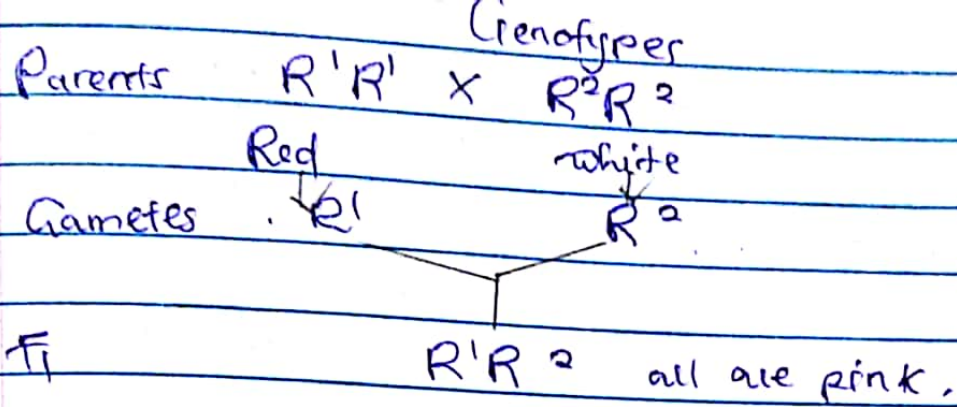 Genotypes
Parents R¹R¹ X R²R²
Red white
Gametes . R¹ R²
F₁ R¹R² all are pink.